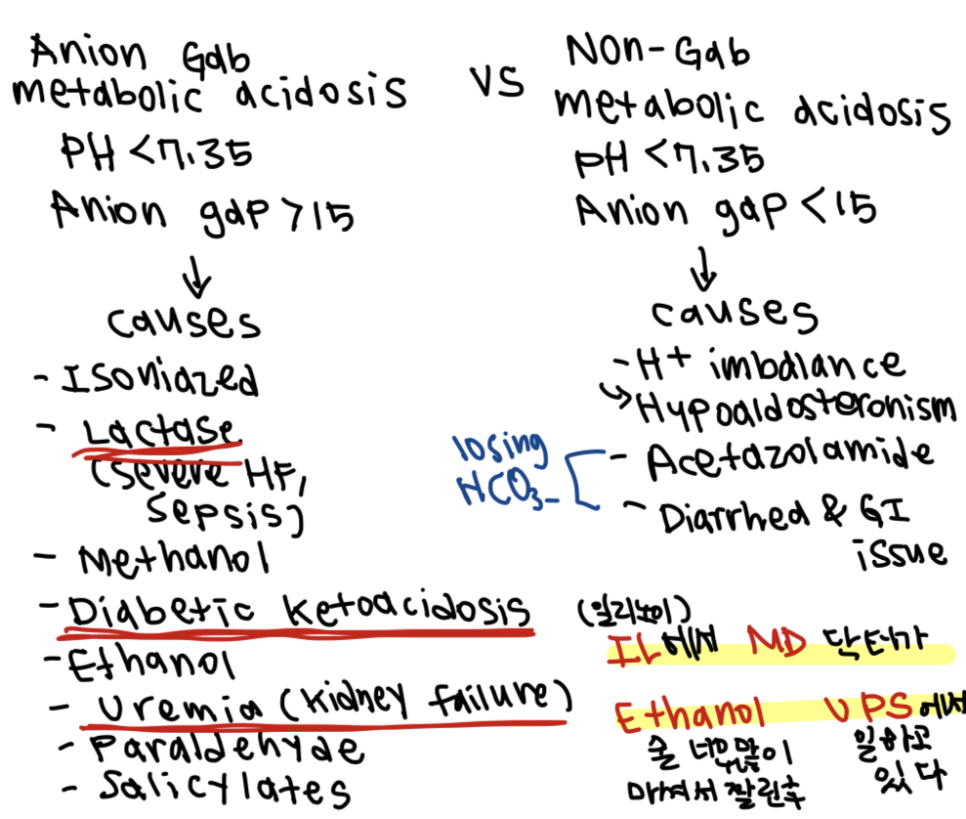 Anion Gab
metabolic acidosis
PH <7.35
Anion gap >15
↓
causes
- Isoniazed
- Lactase
(severe HF,
sepsis)
- Methanol
- Diabetic ketoacidosis
- Ethanol
- Uremia (kidney failure)
- Paraldehyde
- Salicylates
VS
Non-Gab
metabolic acidosis
pH <7.35
Anion gap <15
↓
causes
- H+ imbalance
↳ Hypoaldosteronism
- Acetazolamide
- Diarrhea & GI
issue
losing
HCO3-
(일리노이)
IL에서 MD 닥터가
Ethanol UPS에서
술 너무많이 일하고
마셔서 짤린후 있다